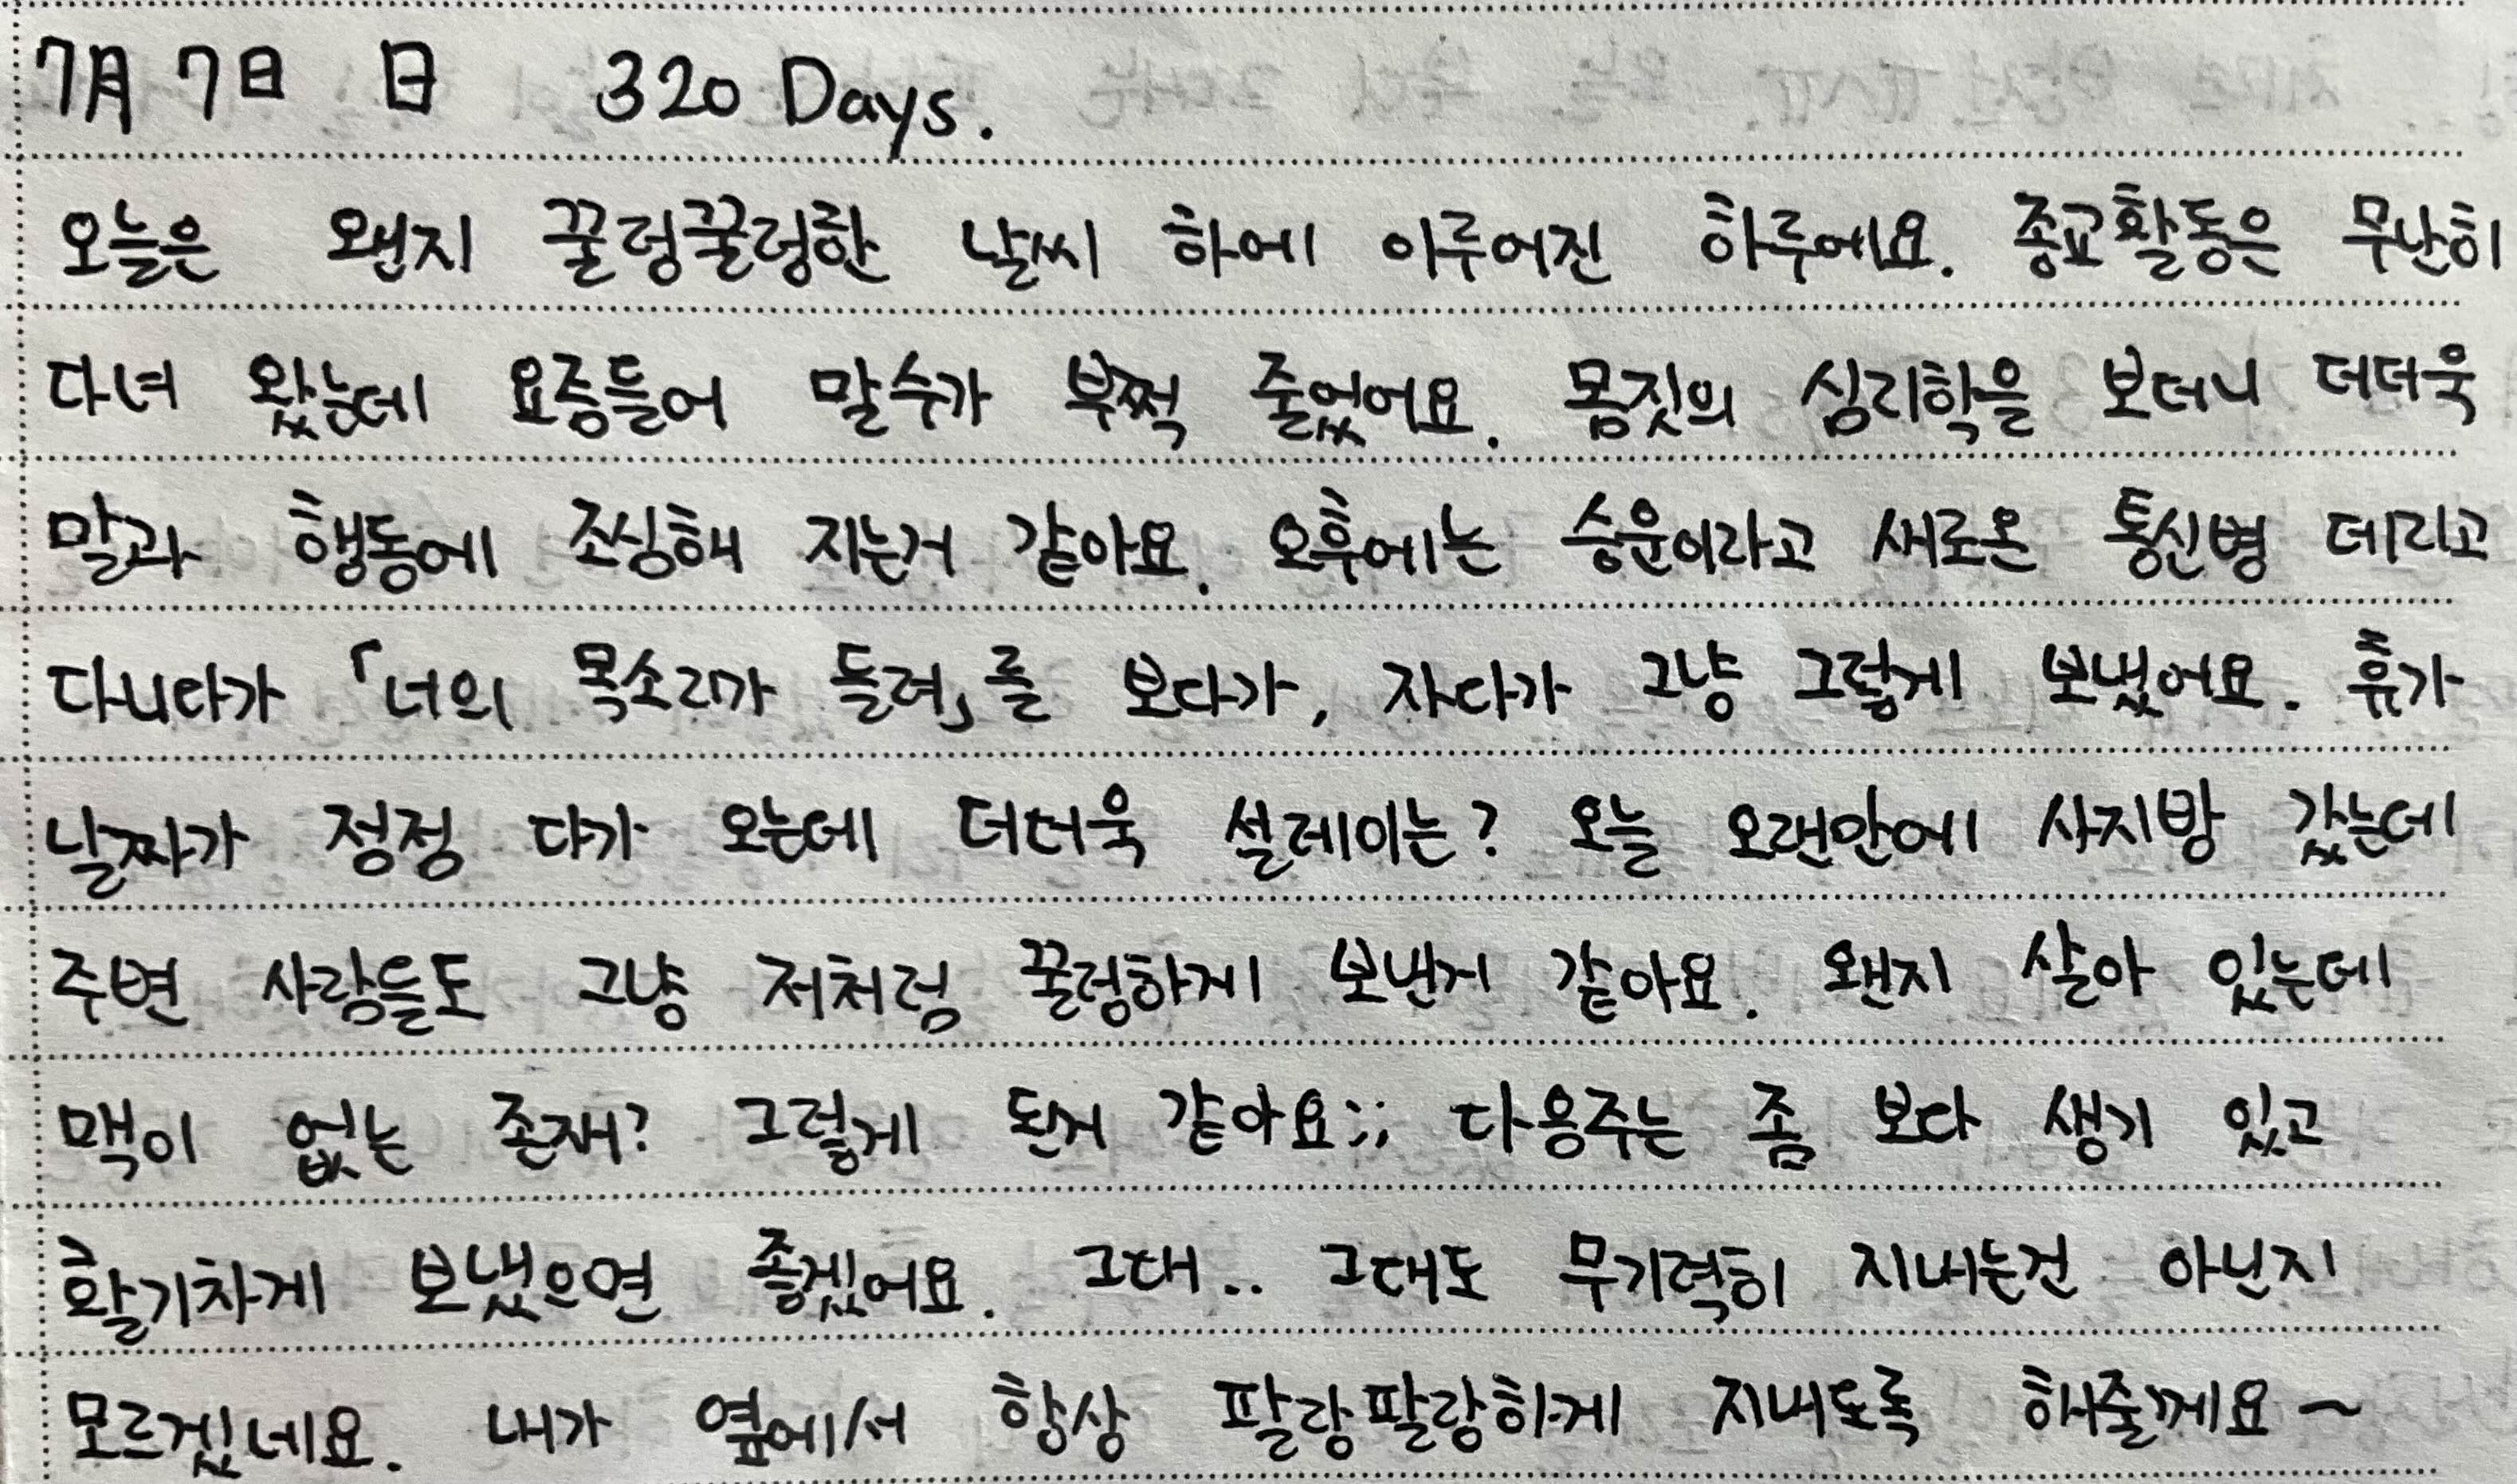 7月 7日 日 320 Days.
오늘은 왠지 꿀렁꿀렁한 날씨 하에 이루어진 하루에요. 종교활동은 무난히
다녀 왔는데 요즘들어 말수가 부쩍 줄었어요. 몸짓의 심리학을 보더니 더더욱
말과 행동에 조심해 지는거 같아요. 오후에는 승운이라고 새로온 통신병 데리고
다니다가 「너의 목소리가 들려」를 보다가, 자다가 그냥 그렇게 보냈어요. 휴가
날짜가 정정 다가 오는데 더더욱 설레이는? 오늘 오랜만에 사지방 갔는데
주변 사람들도 그냥 저처럼 꿀렁하게 보낸거 같아요. 왠지 살아 있는데
맥이 없는 존재? 그렇게 된거 같아요;; 다음주는 좀 보다 생기 있고
활기차게 보냈으면 좋겠어요. 그대.. 그대도 무기력히 지내는건 아닌지
모르겠네요. 내가 옆에서 항상 팔랑팔랑하게 지내도록 해줄게요~